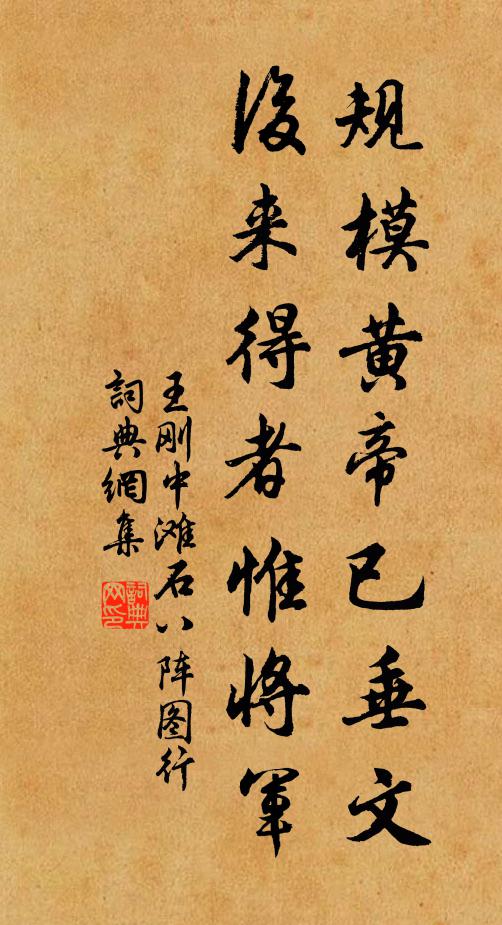 规模黄帝已垂文
後来得者惟将军
王刚中滩石八阵图行
詞典網集
詞典
网印